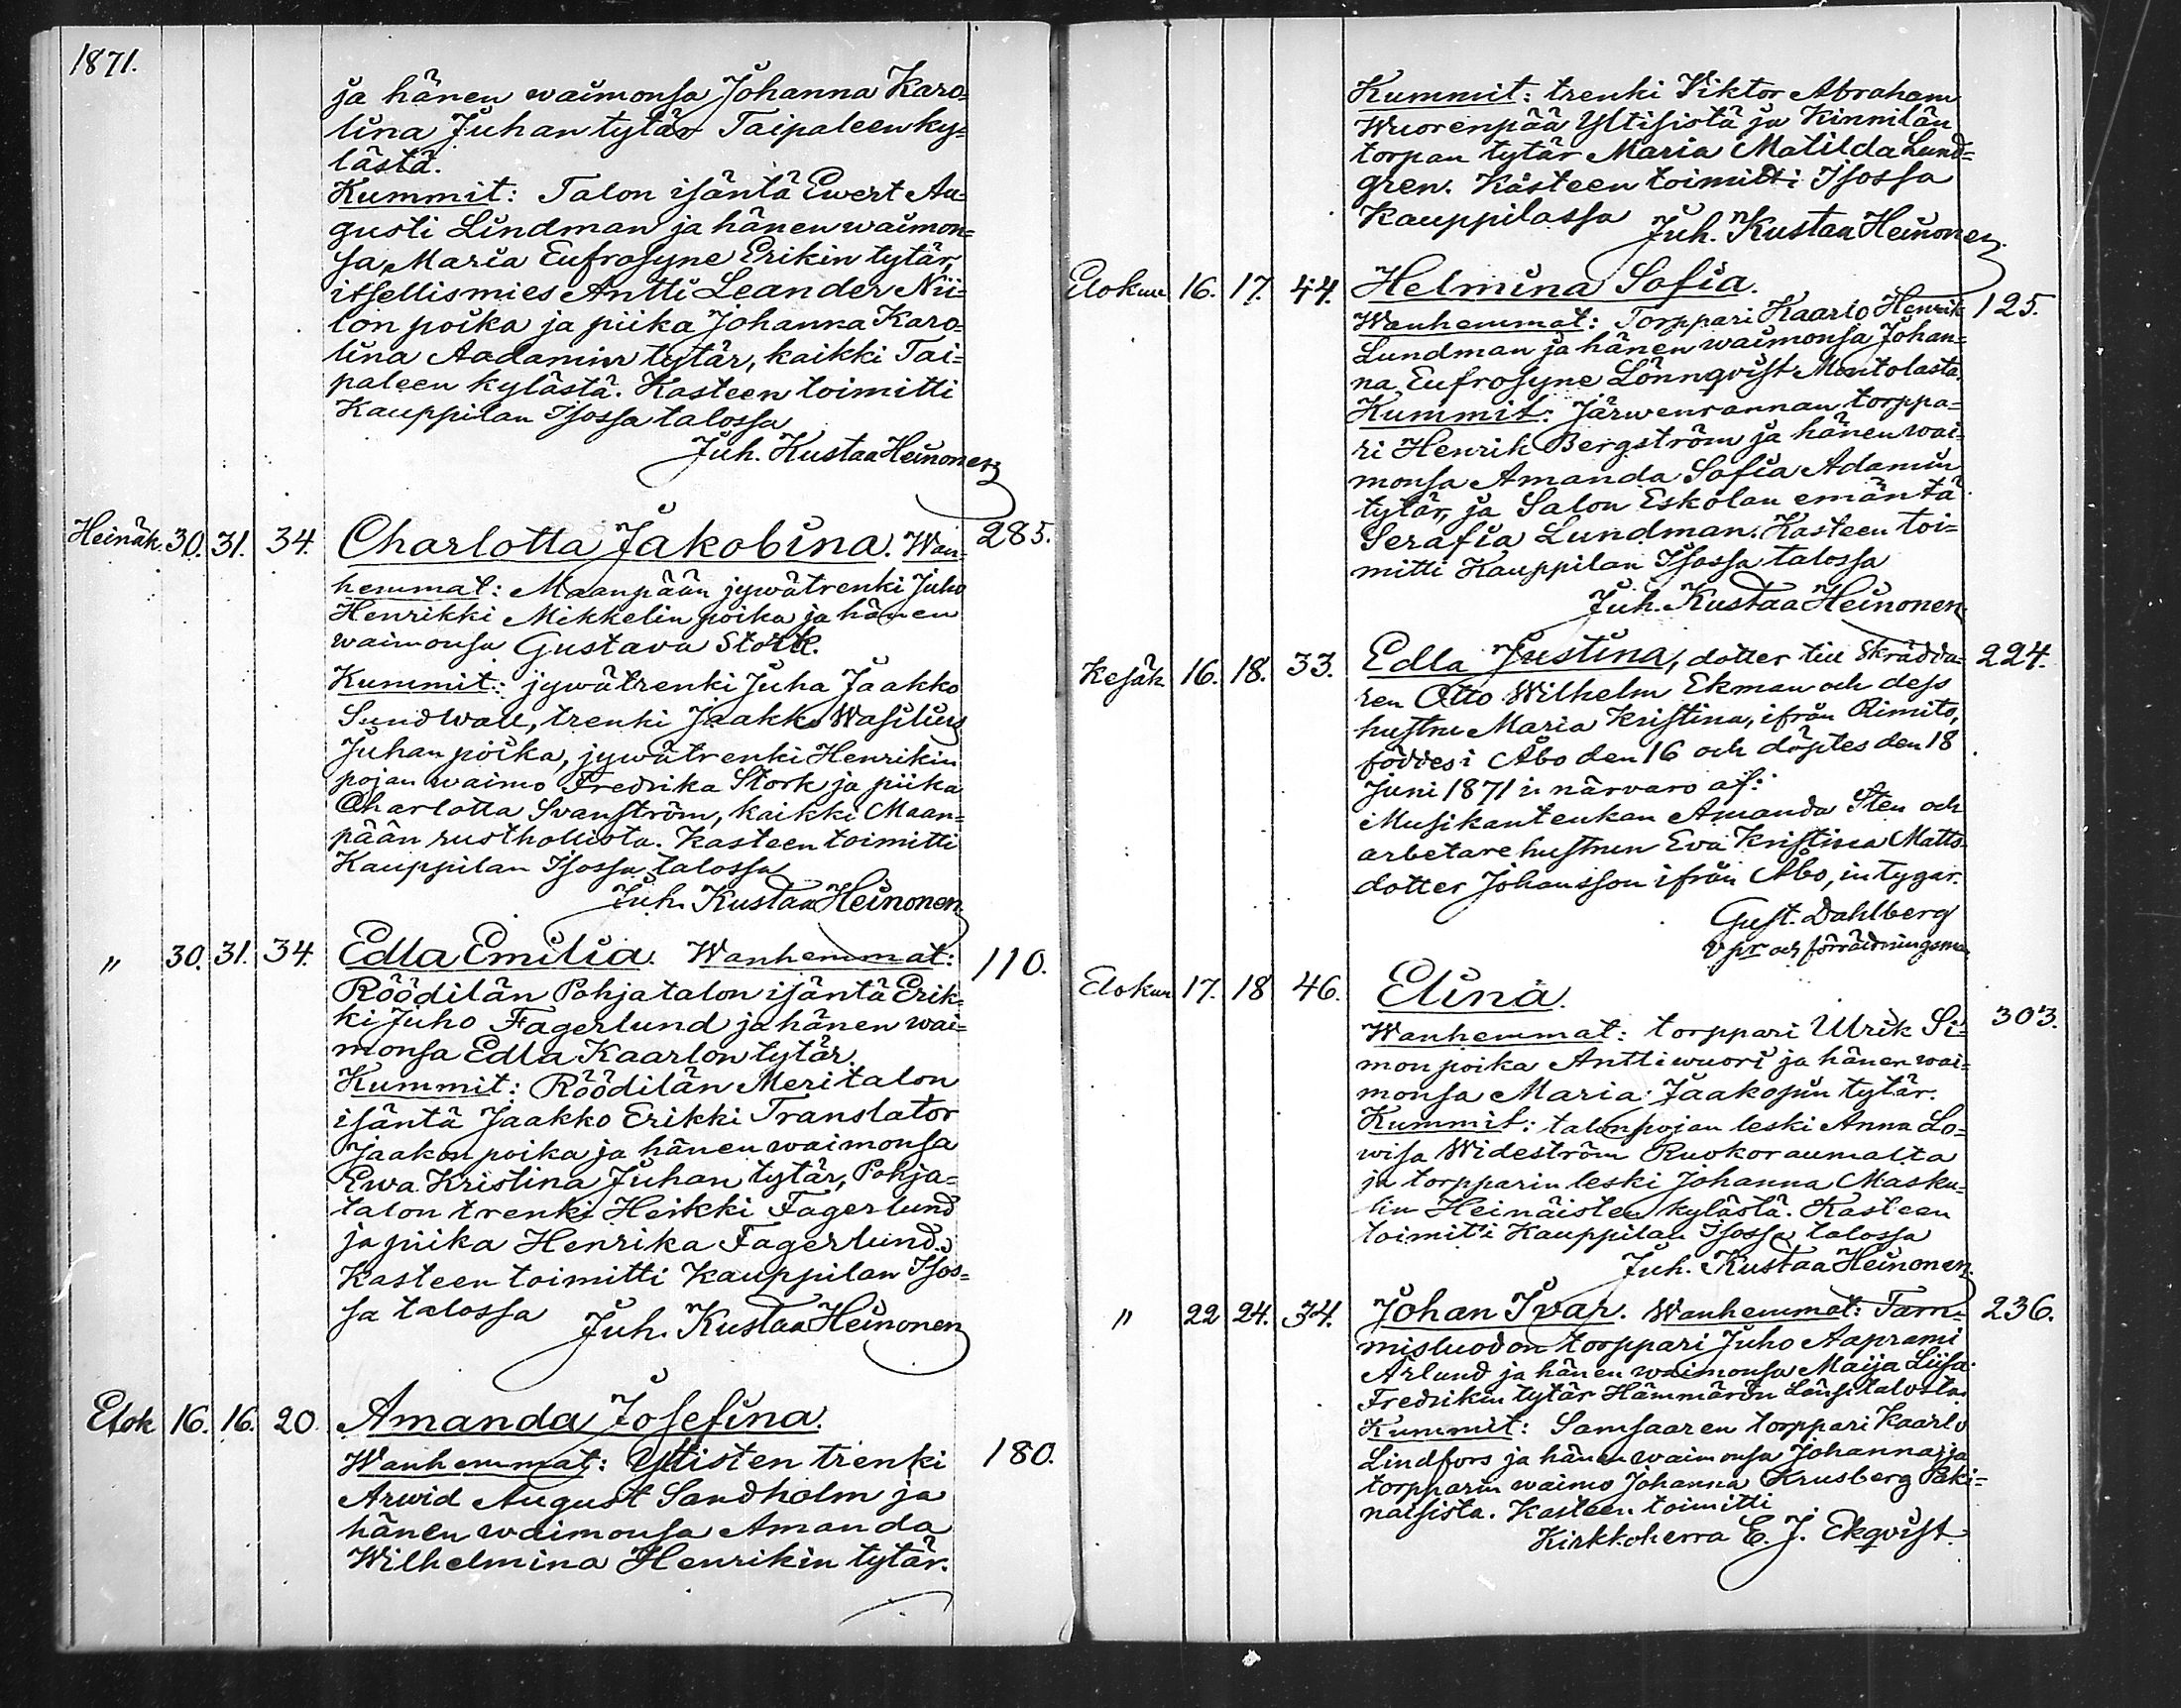 1871.
ja hänen waimonsa Johanna Karo=
lina Juhan tytär Taipaleen ky=
lästä.
Kummit: Talon isäntä Ewert Au=
gusti Lindman ja hänen waimon=
sa Maria Eufrosyne Erikin tytär,
itsellismies Antti Leander Nii=
lon poika ja piika Johanna Karo=
lina Aadamin tytär, kaikki Tai=
paleen kylästä. Kasteen toimitti
Kauppilan Isossa talossa
Juh. Kustaa Heinonen
Heinäk. 30. 31. 34. Charlotta Jakobina. Wan= 285.
hemmat: Maanpään jywätrenki Juho
Henrikki Mikkelin poika ja hänen
waimonsa Gustava Stork.
Kummit: jywätrenki Juha Jaakko
Sundwall, trenki Jaakko Wasilius
Juhan poika, jywätrenki Henrikin
pojan waimo Fredrika Stork ja piika
Charlotta Svanström, kaikki Maan=
pään rusthollista. Kasteen toimitti
Kauppilan Isossa talossa
Juh. Kustaa Heinonen.
" 30. 31. 34. Edla Emilia. Wanhemmat: 110.
Röödilän Pohjatalon isäntä Erik=
ki Juho Fagerlund ja hänen wai=
monsa Edla Kaarlon tytär.
Kummit: Röödilän Meritalon
isäntä Jaakko Erikki Translator
Jaakon poika ja hänen waimonsa
Ewa Kristina Juhan tytär, Pohja=
talon trenki Heikki Fagerlund
ja piika Henrika Fagerlund.
Kasteen toimitti Kauppilan Isos=
sa talossa Juh. Kustaa Heinonen
Elok 16. 16. 20. Amanda Josefina.
Wanhemmat: Yltisten trenki 180.
Arwid August Sandholm ja
hänen waimonsa Amanda
Wilhelmina Henrikin tytär.
Kummit: trenki Viktor Abraham
Wuorenpää Yltisistä ja Kinnilän
torpan tytär Maria Matilda Lund=
gren. Kasteen toimitti Isossa
Kauppilassa Juh. Kustaa Heinonen.
Elokuu 16. 17. 44. Helmina Sofia.
Wanhemmat: Torppari Kaarlo Henrik 125.
Lundman ja hänen waimonsa Johan=
na Eufrosyne Lönnqvist Mentolasta.
Kummit: Järwenrannan torppa=
ri Henrik Bergström ja hänen wai=
monsa Amanda Sofia Adamin
tytär, ja Salon Eskolan emäntä
Serafia Lundman. Kasteen toi=
mitti Kauppilan Isossa talossa
Juh. Kustaa Heinonen
Kesäk 16. 18. 33. Edla Justina, dotter till Skrädda= 224.
ren Otto Wilhelm Ekman och dess
hustru Maria Kristina, ifrån Rimito,
föddes i Åbo den 16 och döptes den 18
Juni 1871 i närvaro af:
Musikantenkan Amanda Sten och
arbetare hustrun Eva Kristina Matts
dotter Johansson ifrån Åbo, intygar.
Gust. Dahlberg
Vpr och förrättningsman
Elokuu 17. 18 46. Elina.
Wanhemmat: torppari Ulrik Si= 303.
mon poika Anttiwuori ja hänen wai=
monsa Maria Jaakopin tytär.
Kummit: talonpojan leski Anna Lo=
wisa Wideström Ruokoraumalta
ja torpparin leski Johanna Masku=
lin Heinäisten kylästä. Kasteen
toimitti Kauppilan Isossa talossa
Juh. Kustaa Heinonen.
" 22 24. 34. Johan Ivar. Wanhemmat: Tam= 236.
misluodon torppari Juho Aaprami
Arlund ja hänen waimonsa Maija Liisa
Fredrikin tytär Hämmärön Länsitalosta.
Kummit: Samsaaren torppari Kaarlo
Lindfors ja hänen waimonsa Johanna, ja
torpparin waimo Johanna Krusberg Paki=
naisista. Kasteen toimitti
Kirkkoherra E. J. Ekqvist.